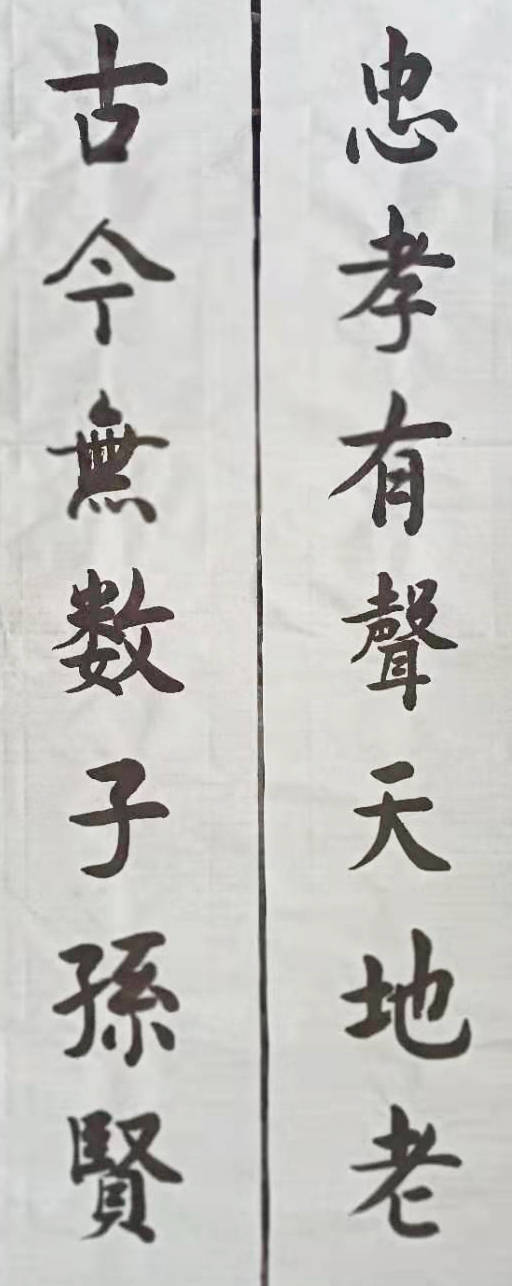 忠孝有聲天地老
古今無数子孫賢